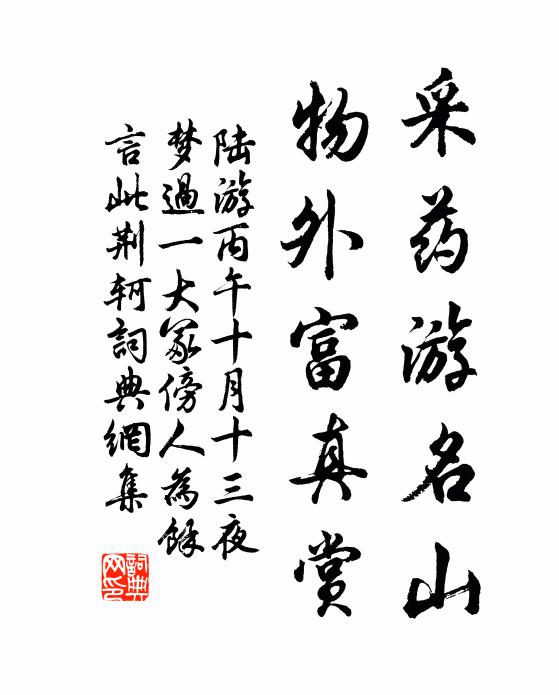 采药游名山
物外富真赏
陆游丙午十月十三夜
梦過一大冢傍人為馀
言此荆轲詞典網集
詞典
网印